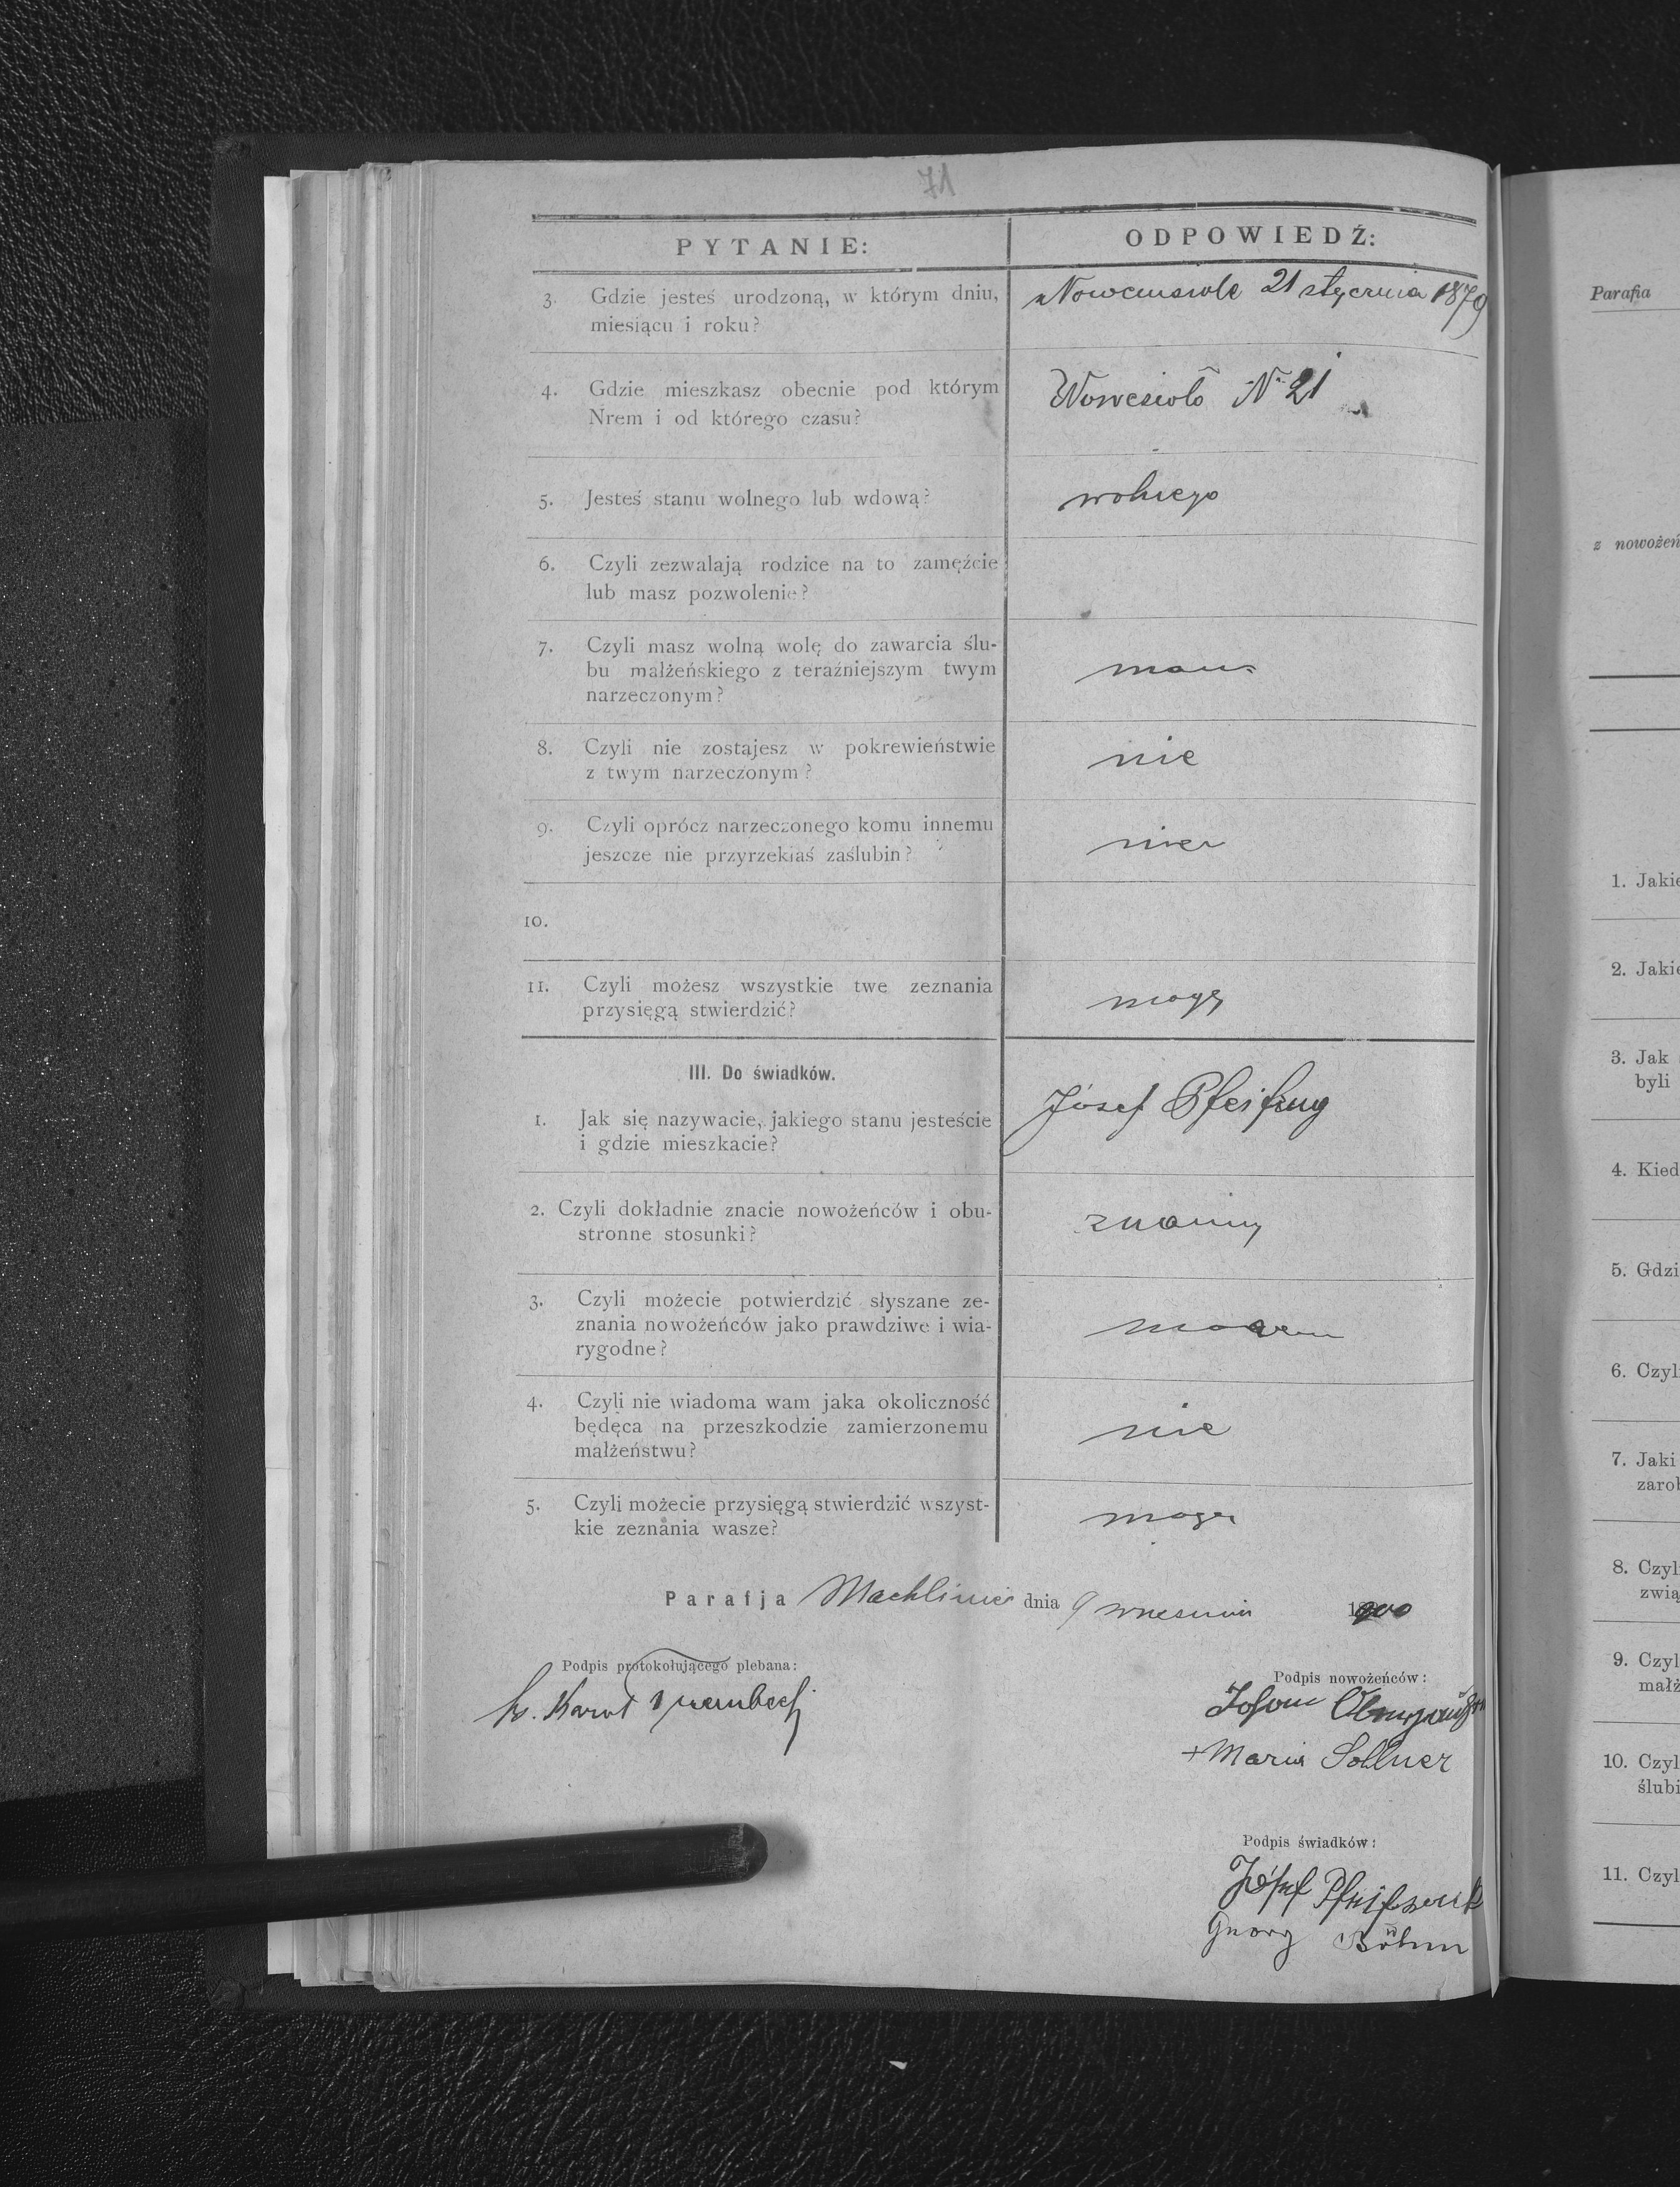 71
PYTANIE:
ODPOWIEDŹ:
3. Gdzie jesteś urodzoną, w którym dniu,
miesiącu i roku?
w Nowemsiole 21 stycznia 1879
4. Gdzie mieszkasz obecnie pod którym
Nrem i od którego czasu?
Nowesioło N 21
5. Jesteś stanu wolnego lub wdową?
wolnego
6. Czyli zezwalają rodzice na to zamęźcie
lub masz pozwolenie?
7. Czyli masz wolną wolę do zawarcia ślu-
bu małżeńskiego z teraźniejszym twym
narzeczonym?
mam
8. Czyli nie zostajesz w pokrewieństwie
z twym narzeczonym?
nie
9. Czyli oprócz narzeczonego komu innemu
jeszcze nie przyrzekłaś zaślubin?
nie
10.
11. Czyli możesz wszystkie twe zeznania
przysięgą stwierdzić?
mogę
III. Do świadków.
1. Jak się nazywacie, jakiego stanu jesteście
i gdzie mieszkacie?
Józef
2. Czyli dokładnie znacie nowożeńców i obu-
stronne stosunki?
znamy
3. Czyli możecie potwierdzić słyszane ze-
znania nowożeńców jako prawdziwe i wia-
rygodne?
4. Czyli nie wiadoma wam jaka okoliczność
będęca na przeszkodzie zamierzonemu
małżeństwu?
nie
5. Czyli możecie przysięgą stwierdzić wszyst-
kie zeznania wasze?
Parafja Machliniec dnia 9 września 1900
Podpis protokołującego plebana:
ks. Karol
Podpis nowożeńców:
+ Maria Sollner
Podpis świadków:
Józef
Georg Böhm
Parafia
z nowożeń
1. Jakie
2. Jakie
3. Jak
byli
4. Kied
5. Gdzi
6. Czyl
7. Jaki
zarob
8. Czyl
zwią
9. Czyl
małż
10. Czyl
ślubi
11. Czyl